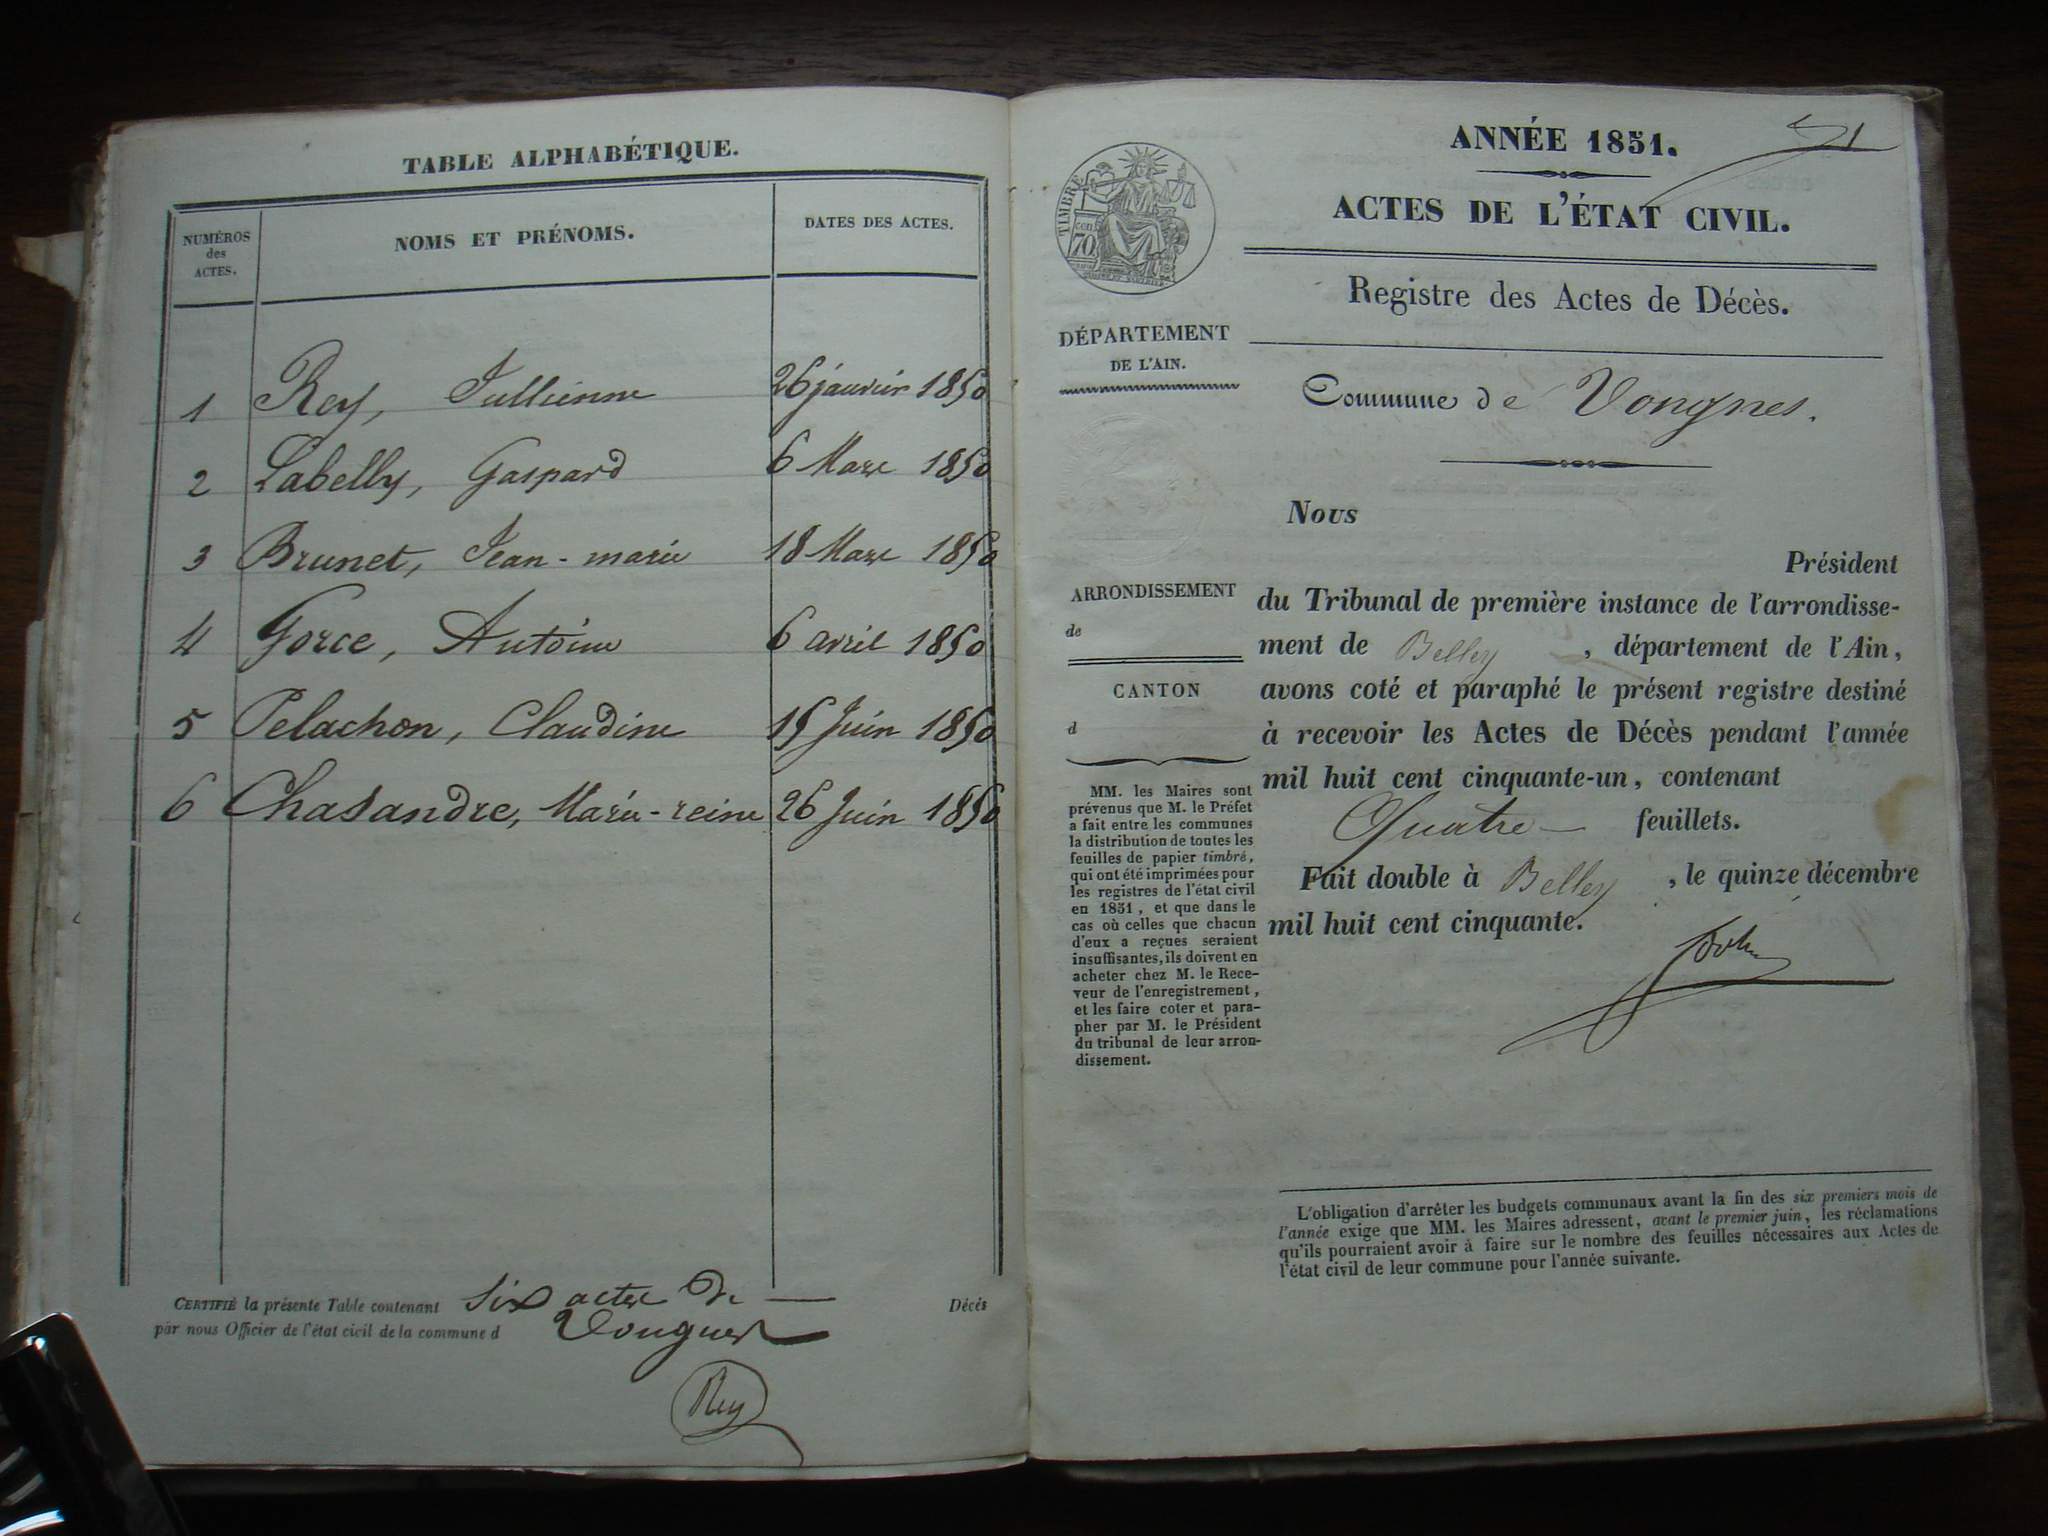 TABLE ALPHABÉTIQUE.
NUMÉROS
des
ACTES.
NOMS ET PRÉNOMS.
DATES DES ACTES.
1 Rey, Jullienne 26 janvier 1850
2 Labelly, Gaspard 6 Mars 1850
3 Brunet, Jean-marie 18 Mars 1850
4 Gorce, Antoine 6 avril 1850
5 Pelachon, Claudine 15 Juin 1850
6 Chasandre, Marie-reine 26 Juin 1850
CERTIFIÉ la présente Table contenant six actes de Décès
par nous Officier de l'état civil de la commune d Vongnes
Rey
ANNÉE 1851.
ACTES DE L'ÉTAT CIVIL.
TIMBRE
70
Registre des Actes de Décès.
DÉPARTEMENT
DE L'AIN.
Commune de Vongnes.
ARRONDISSEMENT
de
CANTON
d
MM. les Maires sont
prévenus que M. le Préfet
a fait entre les communes
la distribution de toutes les
feuilles de papier timbré,
qui ont été imprimées pour
les registres de l'état civil
en 1851, et que dans le
cas où celles que chacun
d'eux a reçues seraient
insuffisantes, ils doivent en
acheter chez M. le Rece-
veur de l'enregistrement,
et les faire coter et para-
pher par M. le Président
du tribunal de leur arron-
dissement.
Nous
Président
du Tribunal de première instance de l'arrondisse-
ment de Belley, département de l'Ain,
avons coté et paraphé le présent registre destiné
à recevoir les Actes de Décès pendant l'année
mil huit cent cinquante-un, contenant
Quatre feuillets.
Fait double à Belley, le quinze décembre
mil huit cent cinquante.
L'obligation d'arrêter les budgets communaux avant la fin des six premiers mois de
l'année exige que MM. les Maires adressent, avant le premier juin, les réclamations
qu'ils pourraient avoir à faire sur le nombre des feuilles nécessaires aux Actes de
l'état civil de leur commune pour l'année suivante.